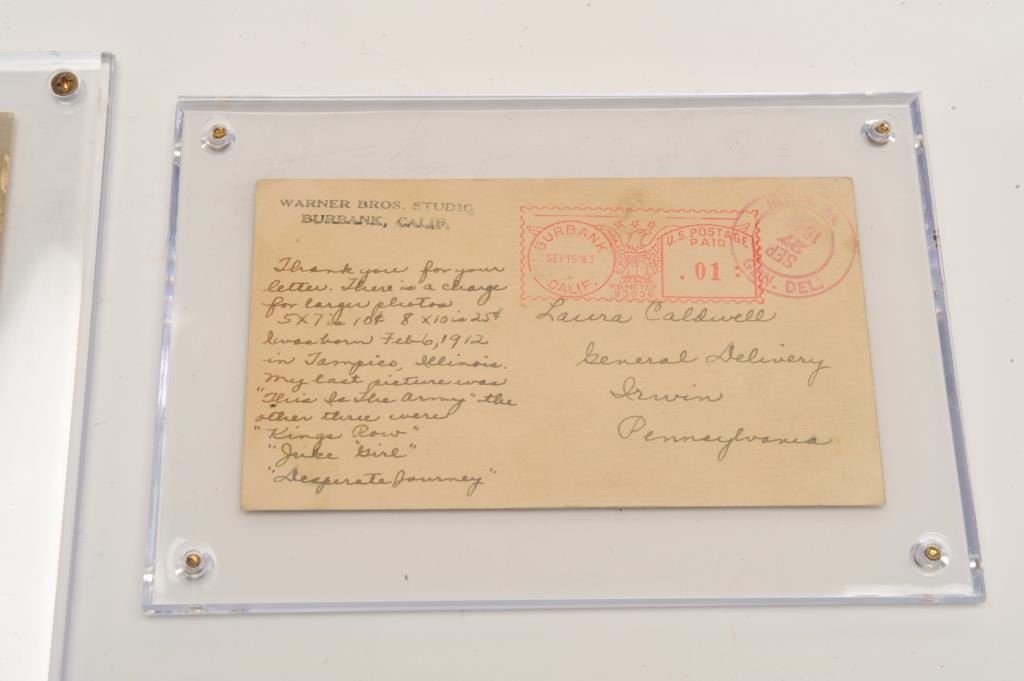 WARNER BROS. STUDIO
BURBANK, CALIF.
Thank you for your
letter. There is a charge
for larger photos
5X7 is 10¢ 8X10 is 25¢
I was born Feb 6, 1912
in Tampico, Illinois.
My last picture was
"This Is The Army" the
other three were
"Kings Row"
"Juke Girl"
"Desperate Journey"
BURBANK
SEP 15 '43
CALIF.
U.S. POSTAGE
PAID
.01
P.B. METER
SEP
27
GEN. DEL.
Laura Caldwell
General Delivery
Irwin
Pennsylvania